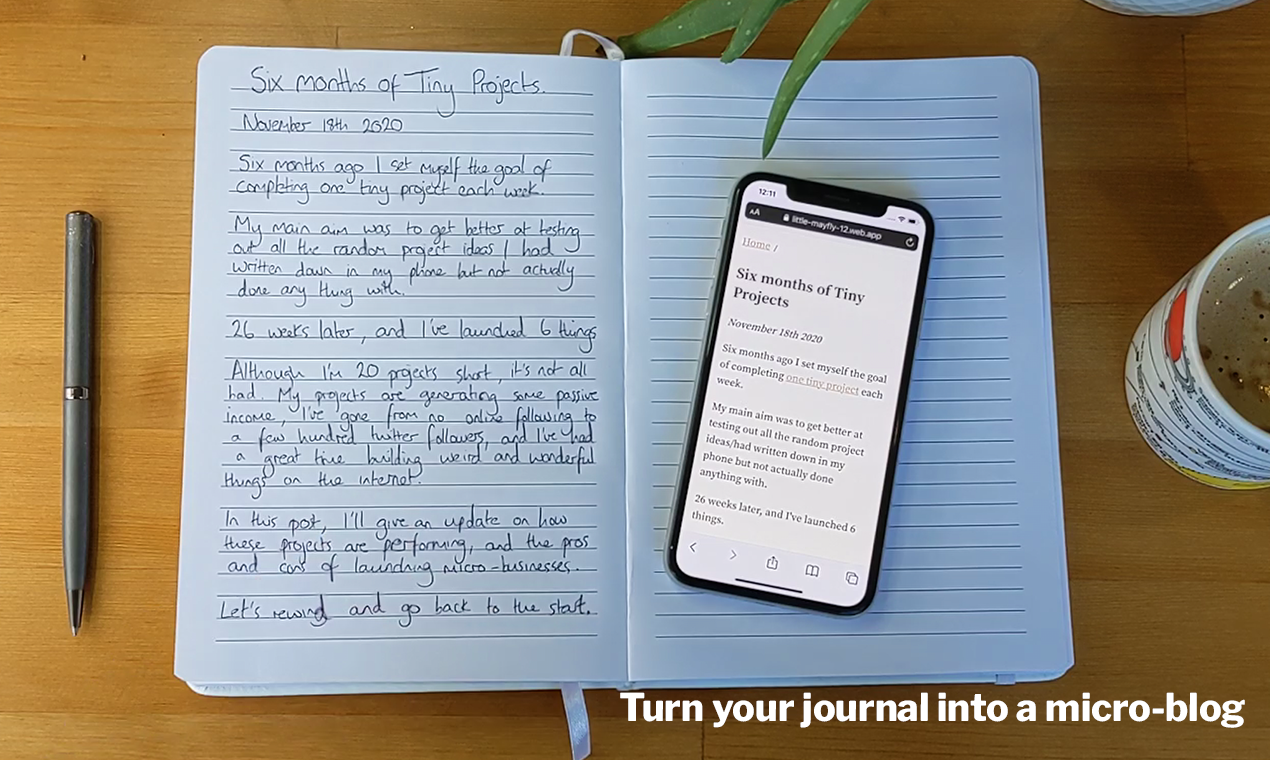 Six months of Tiny Projects.
November 18th 2020
Six months ago I set myself the goal of
completing one tiny project each week.
My main aim was to get better at testing
out all the random project ideas I had
written down in my phone but not actually
done any thing with.
26 weeks later, and I've launched 6 things
Although I'm 20 projects short, it's not all
bad. My projects are generating some passive
income, I've gone from no online following to
a few hundred twitter followers, and I've had
a great time building weird and wonderful
things on the internet.
In this post, I'll give an update on how
these projects are performing, and the pros
and cons of launching micro-businesses.
Let's rewind and go back to the start.
12:11
AA little-mayfly-12.web.app
Home /
Six months of Tiny
Projects
November 18th 2020
Six months ago I set myself the goal
of completing one tiny project each
week.
My main aim was to get better at
testing out all the random project
ideas/had written down in my
phone but not actually done
anything with.
26 weeks later, and I've launched 6
things.
Turn your journal into a micro-blog